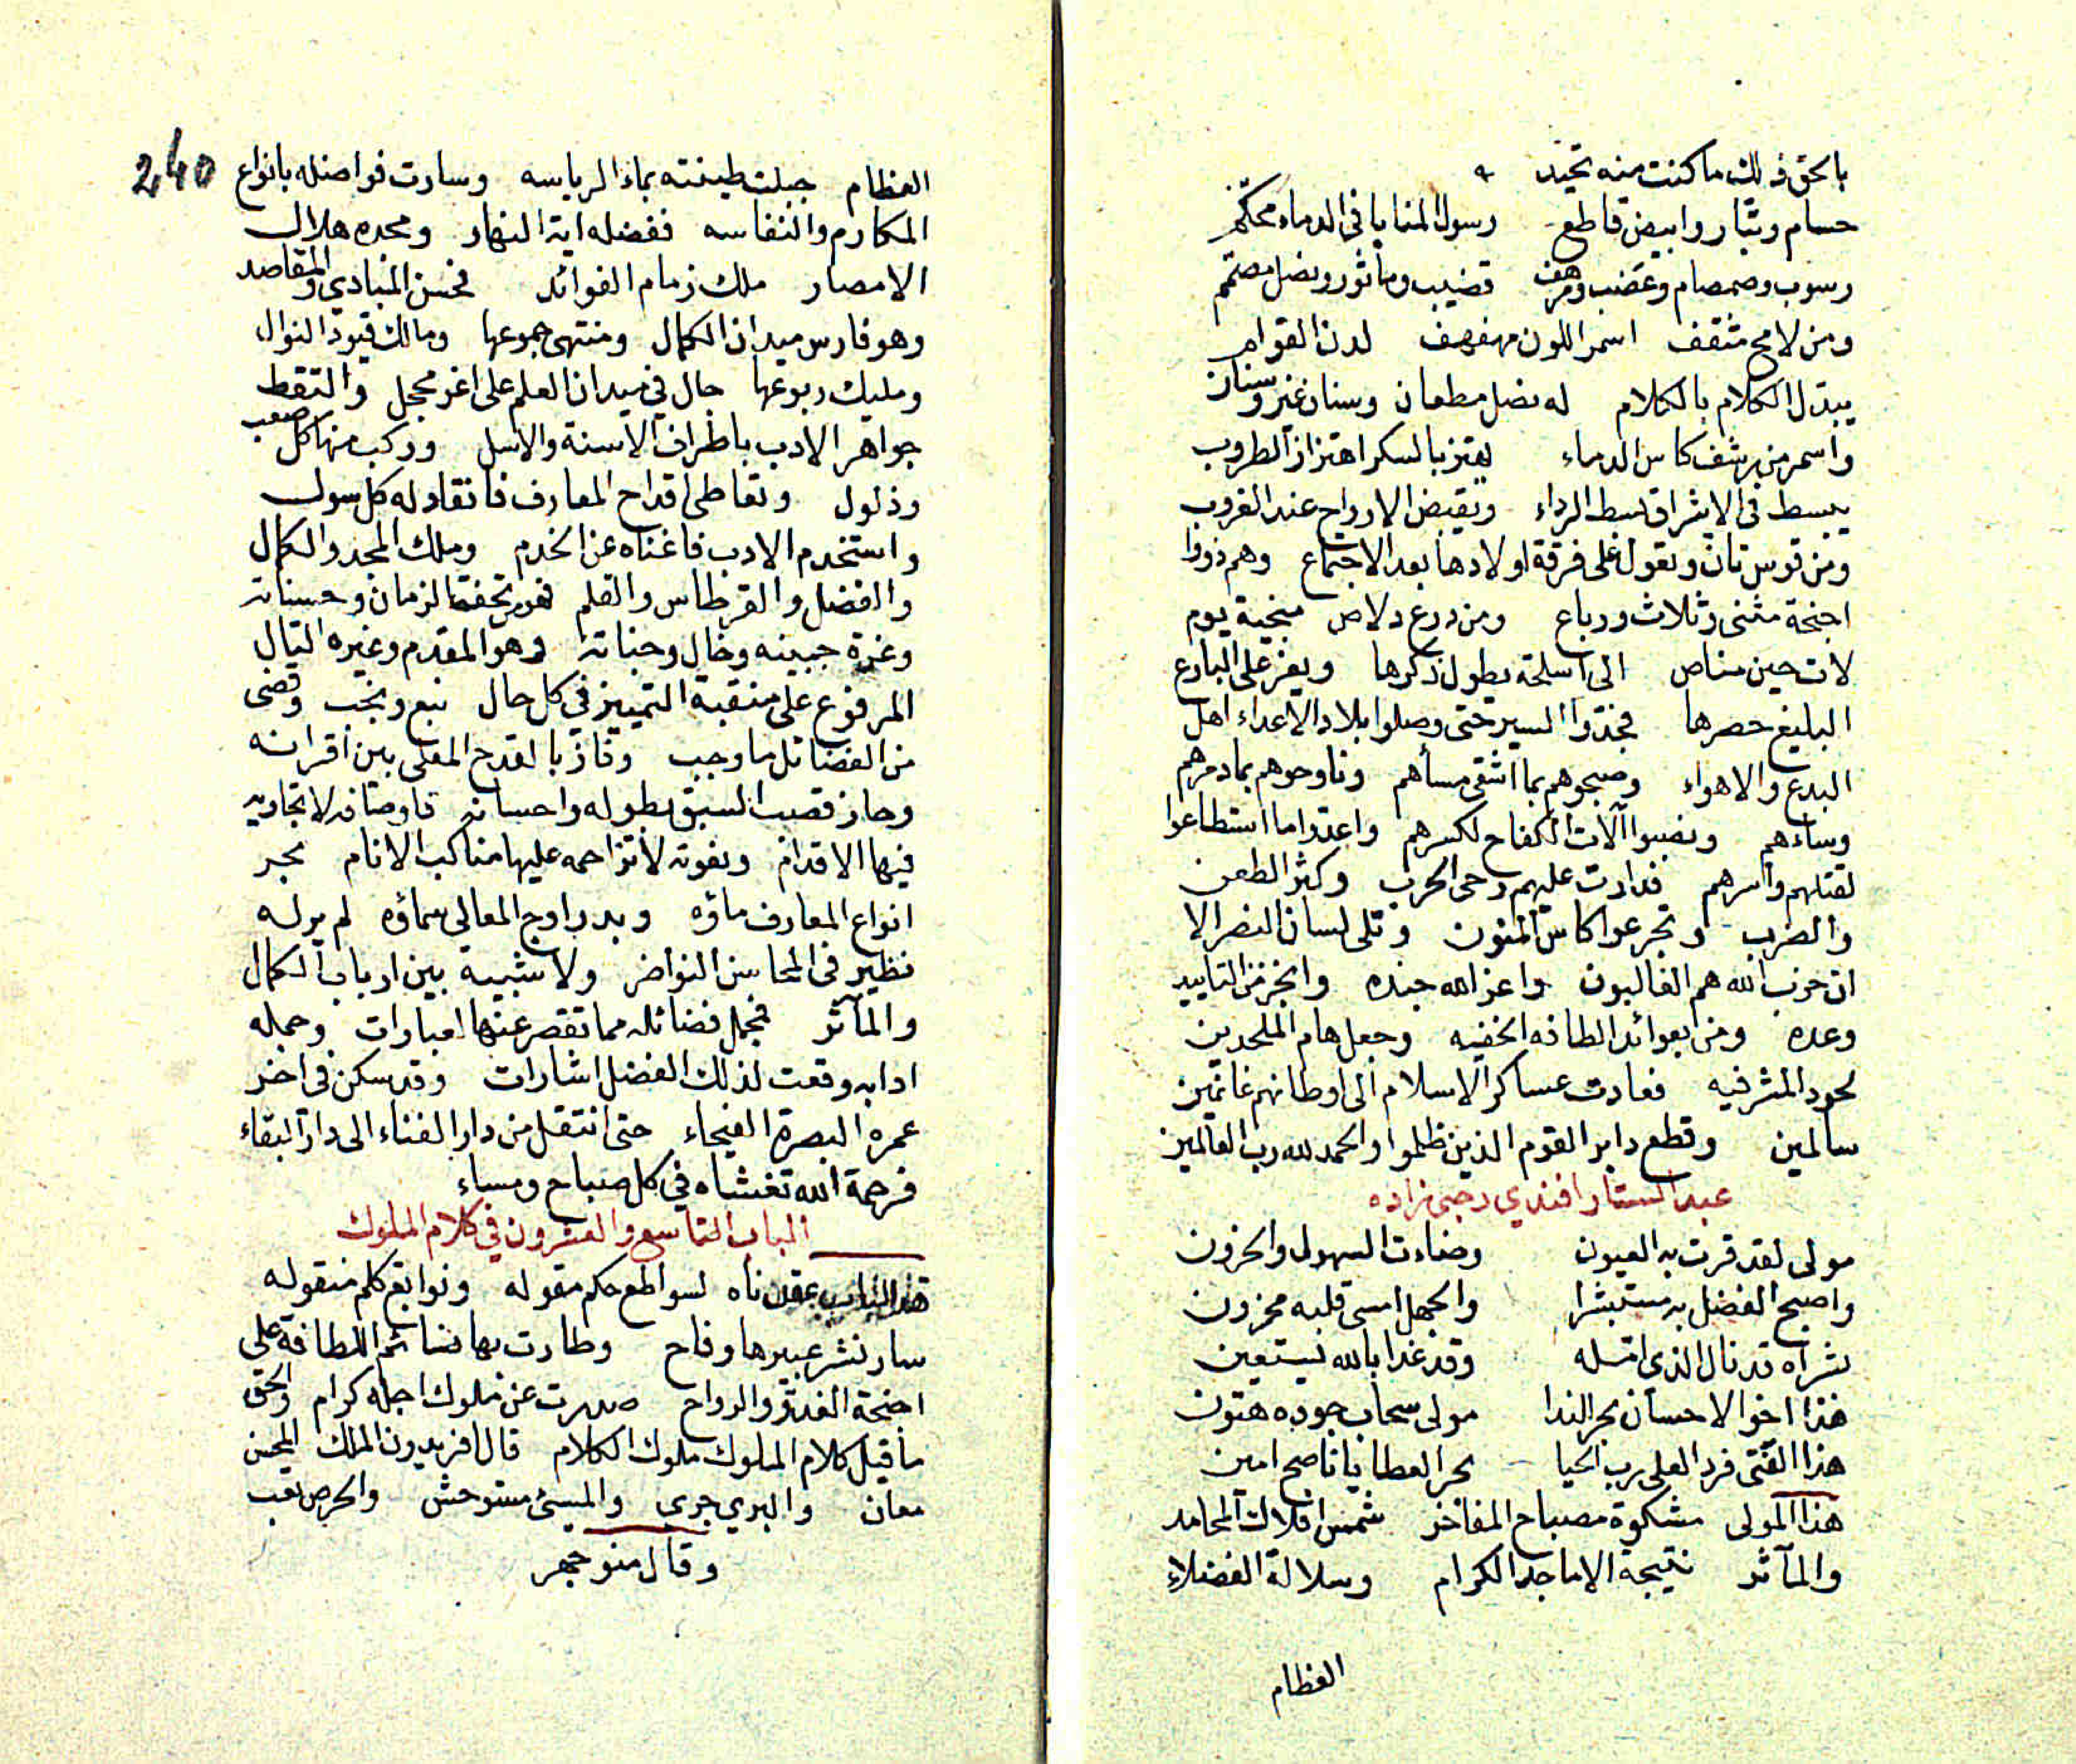 بالحق ذلك ما كنت منه تحيد
حسام وبتار وابيض قاطع رسول المنايا في الدماء محكم
رسوب وصمصام وعضب ومرهف قضيب ومأثور ونصل مصمم
ومن لامح مثقف اسمر اللون مهفهف لدن القوام
يبتدل الكلام بالكلام له نصل مطعان وسنان غير وسنان
واسمر من يرشف كاس الدماء يهتز بالسكر اهتزاز الطروب
يبسط في الاشراق بسط الرداء ويقبض الارواح عند الغروب
ومن قوس تان وتقول على فرقة اولادها بعد الاجتماع وهم ذووا
اجنحة مثنى وثلاث ورباع ومن درع دلاص منجية يوم
لات حين مناص الى اسلحة يطول ذكرها ويعز على البارع
البليغ حصرها فجدوا السير حتى وصلوا بلاد الاعداء اهل
البدع والاهواء وصبحوهم بما اشقى مسأهم وناوحوهم بما دمرهم
وساءهم ونصبوا آلات الكفاح لكسرهم واعتدوا ما استطاعوا
لقتلهم وأسرهم فدارت عليهم رحى الحرب وكثر الطعن
والضرب وتجرعوا كاس المنون وتلى لسان النصر الا
ان حزب الله هم الغالبون واعز الله جنده وانجز من التاييد
وعده ومن بعوائد الطافه الخفيه وجعل هام الملحدين
لحود المشرفيه فعادت عساكر الاسلام الى اوطانهم غانمين
سالمين وقطع دابر القوم الذين ظلموا والحمد لله رب العالمين
عبد الستار افندي رجبي زاده
مولى لقد قرت به العيون وضاءت السهول والحزون
واصبح الفضل به مستبشرا والجهل امسى قلبه محزون
بشراه قد نال الذي امله وقد غدا بالله يستعين
هذا اخو الاحسان بحر الندا مولى سحاب جوده هتون
هذا الفتى فرد العلى رب الحيا بحر العطايا ناصح امين
هذا المولى مشكوة مصباح المفاخر شمس افلاك المحامد
والمآثر نتيجة الاماجد الكرام وسلالة الفضلاء
العظام
240
العظام جبلت طينته بماء الرياسه وسارت فواضله بانواع
المكارم والنفاسه ففضله اية النهار ومجده هلال
الامصار ملك زمام الفوائد فحسن المبادي والمقاصد
وهو فارس ميدان الكمال ومنتهى جموعها ومالك قيود النوال
ومليك ربوعها جال في ميدان العلم على اغر محجل والتقط
جواهر الادب باطراف الاسنة والاسل وركب منها كل صعب
وذلول وتعاطى اقداح المعارف فانقاد له كل سول
واستخدم الادب فاغناه عن الخدم وملك المجد والكمال
والفضل والقرطاس والقلم فهو تحفة الزمان وحسناته
وغرة جبينه وخال وجناته وهو المقدم وغيره التال
المرفوع على منقبة التمييز في كل حال نبع ونجب وقضى
من الفضائل ما وجب وفاز بالقدح المعلى بين اقرانه
وحاز قصب السبق بطوله واحسانه فاوصافه لا تجاريه
فيها الاقدام ونعوته لا تزاحمه عليها مناكب الانام بحر
انواع المعارف ماؤه وبدر اوج المعالي سماؤه لم ير له
نظير في المحاسن النواضر ولا شبيه بين ارباب الكمال
والمآثر فجمل فضائله مما تقصر عنها العبارات وجمله
ادابه وقعت لذلك الفضل اشارات وقد سكن في اخر
عمره البصرة الفيحاء حتى انتقل من دار الفناء الى دار البقاء
فرحمة الله تغشاه في كل صباح ومساء
الباب التاسع والعشرون في كلام الملوك
هذا الباب عقدناه لسواطع حكم مقوله ونوابغ كلم منقوله
سار نشر عبيرها وفاح وطارت بها نسائم اللطافة على
اجنحة الغدو والرواح صدرت عن ملوك اجله كرام والحق
ما قيل كلام الملوك ملوك الكلام قال افريدون الملك المحسن
معان والبري جري والمسيئ مستوحش والحرص تعب
وقال منوجهر